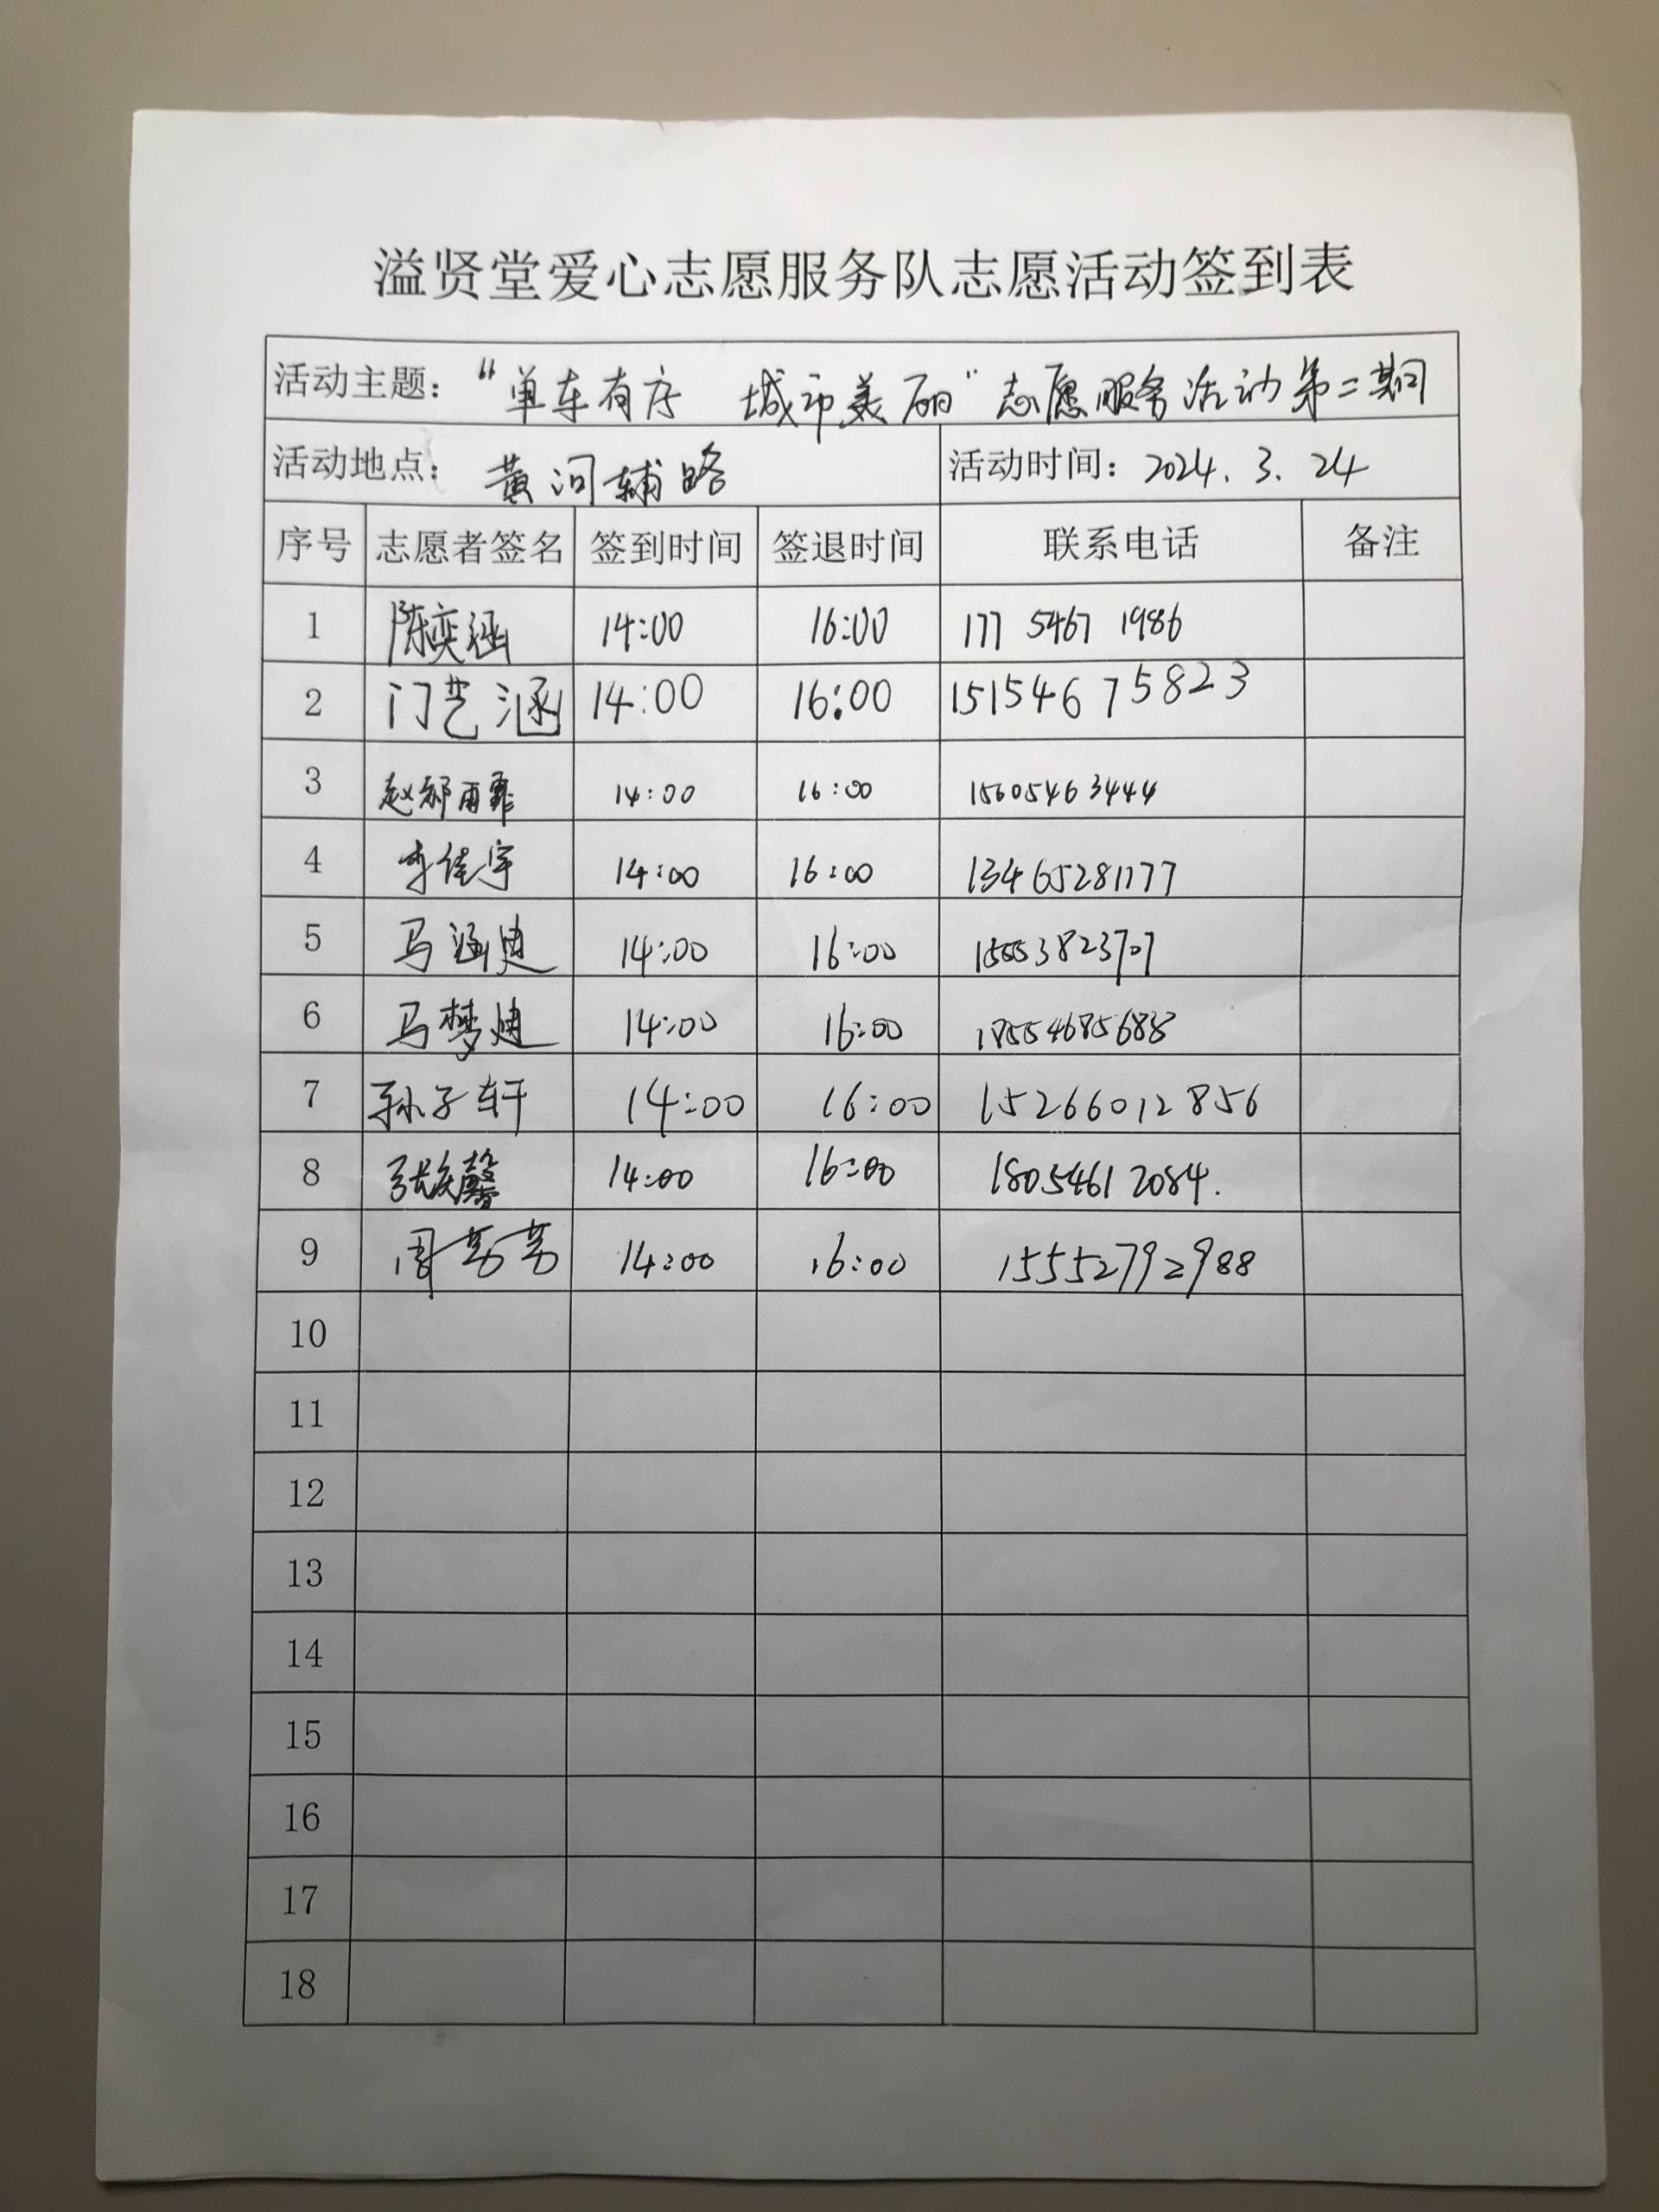 溢贤堂爱心志愿服务队志愿活动签到表
活动主题：“单车有序 城市美丽”志愿服务活动第二期
活动地点：黄河辅路 活动时间：2024.3.24
序号 志愿者签名 签到时间 签退时间 联系电话 备注
1 陈奕涵 14:00 16:00 177 5467 1986
2 门艺涵 14:00 16:00 15154675823
3 赵郝雨霏 14:00 16:00 15605463444
4 李佳宇 14:00 16:00 13465281177
5 马涵迪 14:00 16:00
6 马梦迪 14:00 16:00 18554685688
7 孙子轩 14:00 16:00 15266012856
8 14:00 16:00 18054612084.
9 周芳芳 14:00 16:00 15552792988
10
11
12
13
14
15
16
17
18